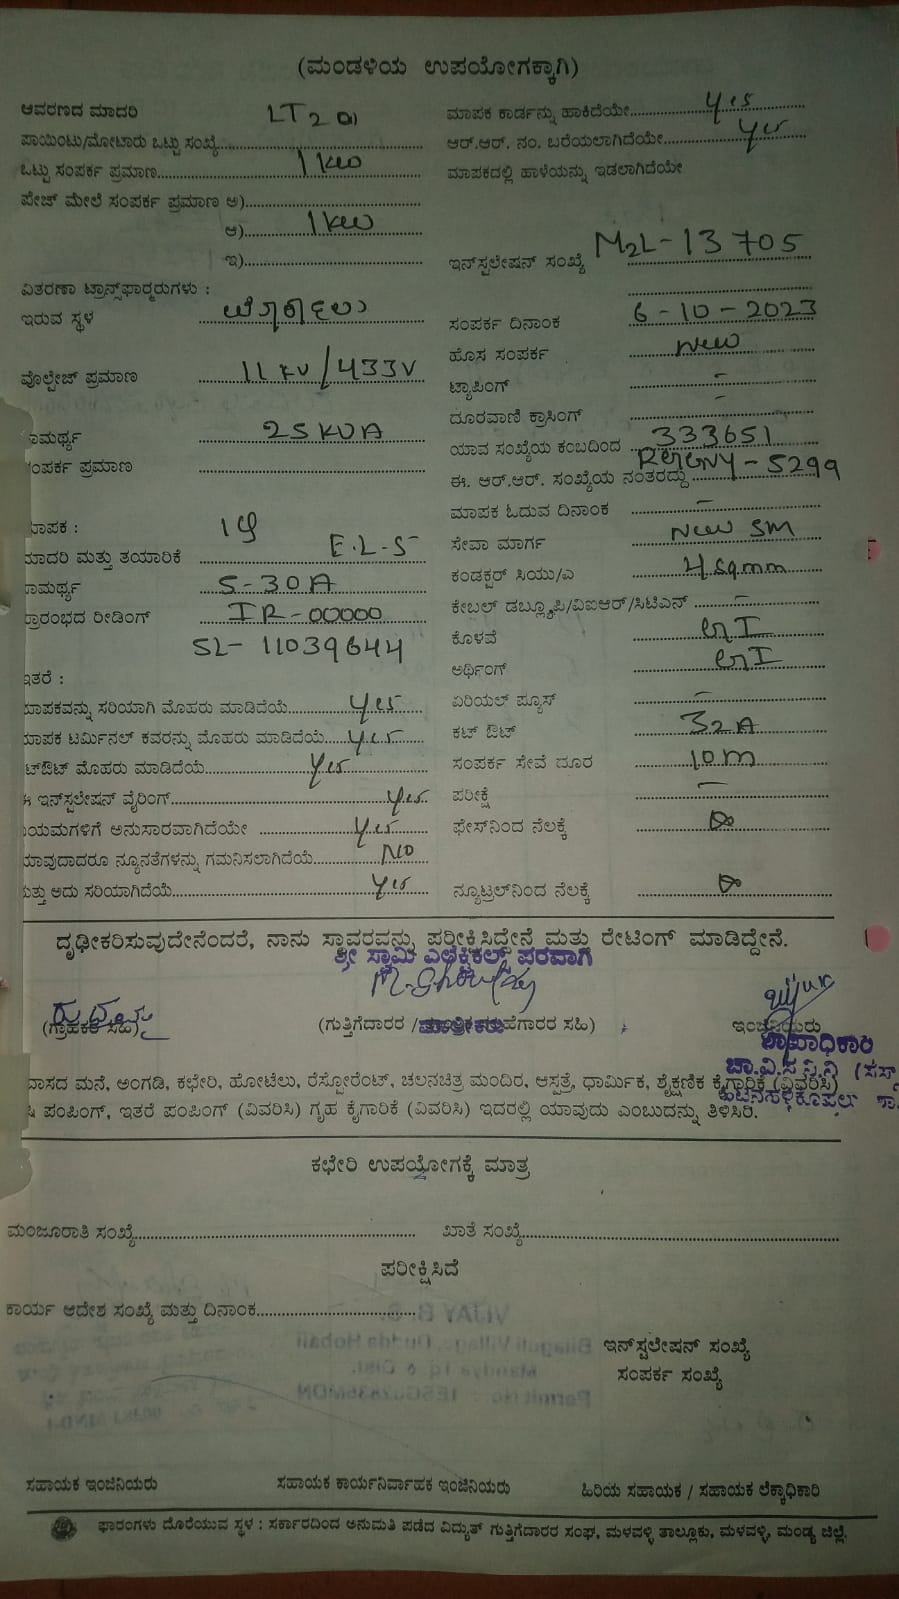 (ಮಂಡಳಿಯ ಉಪಯೋಗಕ್ಕಾಗಿ)
ಆವರಣದ ಮಾದರಿ LT2
ಪಾಯಿಂಟು/ಮೋಟಾರು ಒಟ್ಟು ಸಂಖ್ಯೆ
ಒಟ್ಟು ಸಂಪರ್ಕ ಪ್ರಮಾಣ 1 kw
ಪೇಜ್ ಮೇಲೆ ಸಂಪರ್ಕ ಪ್ರಮಾಣ ಅ)
ಆ) 1 kw
ಇ)
ವಿತರಣಾ ಟ್ರಾನ್ಸ್‌ಫಾರ್‍ಮರುಗಳು :
ಇರುವ ಸ್ಥಳ
ವೊಲ್ಟೇಜ್ ಪ್ರಮಾಣ 11 KV/433V
ಾಮರ್ಥ್ಯ 25 KVA
ಂಪರ್ಕ ಪ್ರಮಾಣ
ಾಪಕ : 1φ
ಮಾದರಿ ಮತ್ತು ತಯಾರಿಕೆ E.L.S
ಾಮರ್ಥ್ಯ 5-30A
ಪ್ರಾರಂಭದ ರೀಡಿಂಗ್ IR-00000
SL- 11039644
ಇತರೆ :
ಮಾಪಕವನ್ನು ಸರಿಯಾಗಿ ಮೊಹರು ಮಾಡಿದೆಯೆ yes
ಮಾಪಕ ಟರ್ಮಿನಲ್ ಕವರನ್ನು ಮೊಹರು ಮಾಡಿದೆಯೆ yes
ಟ್‌ಔಟ್ ಮೊಹರು ಮಾಡಿದೆಯೆ yes
ಈ ಇನ್‌ಸ್ಟಲೇಷನ್ ವೈರಿಂಗ್ yes
ಯಮಗಳಿಗೆ ಅನುಸಾರವಾಗಿದೆಯೇ yes
ಯಾವುದಾದರೂ ನ್ಯೂನತೆಗಳನ್ನು ಗಮನಿಸಲಾಗಿದೆಯೆ NO
ಮತ್ತು ಅದು ಸರಿಯಾಗಿದೆಯೆ yes
ಮಾಪಕ ಕಾರ್ಡನ್ನು ಹಾಕಿದೆಯೇ yes
ಆರ್.ಆರ್. ನಂ. ಬರೆಯಲಾಗಿದೆಯೇ yes
ಮಾಪಕದಲ್ಲಿ ಹಾಳೆಯನ್ನು ಇಡಲಾಗಿದೆಯೇ
ಇನ್‌ಸ್ಟಲೇಷನ್ ಸಂಖ್ಯೆ M2L-13705
ಸಂಪರ್ಕ ದಿನಾಂಕ 6-10-2023
ಹೊಸ ಸಂಪರ್ಕ New
ಟ್ಯಾಪಿಂಗ್ -
ದೂರವಾಣಿ ಕ್ರಾಸಿಂಗ್ -
ಯಾವ ಸಂಖ್ಯೆಯ ಕಂಬದಿಂದ 333651
ಈ. ಆರ್.ಆರ್. ಸಂಖ್ಯೆಯ ನಂತರದ್ದು -5299
ಮಾಪಕ ಓದುವ ದಿನಾಂಕ -
ಸೇವಾ ಮಾರ್ಗ New SM
ಕಂಡಕ್ಟರ್ ಸಿಯು/ಎ 4 sqmm
ಕೇಬಲ್ ಡಬ್ಲ್ಯೂಪಿ/ವಿಐಆರ್/ಸಿಟಿಎನ್ -
ಕೊಳವೆ GI
ಅರ್ಥಿಂಗ್ GI
ಏರಿಯಲ್ ಪ್ಯೂಸ್ -
ಕಟ್ ಔಟ್ 32A
ಸಂಪರ್ಕ ಸೇವೆ ದೂರ 10m
ಪರೀಕ್ಷೆ -
ಫೇಸ್‌ನಿಂದ ನೆಲಕ್ಕೆ
ನ್ಯೂಟ್ರಲ್‌ನಿಂದ ನೆಲಕ್ಕೆ
ದೃಢೀಕರಿಸುವುದೇನೆಂದರೆ, ನಾನು ಸ್ಥಾವರವನ್ನು ಪರೀಕ್ಷಿಸಿದ್ದೇನೆ ಮತ್ತು ರೇಟಿಂಗ್ ಮಾಡಿದ್ದೇನೆ.
ಶ್ರೀ ಸ್ವಾಮಿ ಎಲೆಕ್ಟ್ರಿಕಲ್ಸ್ ಪರವಾಗಿ
(ಗ್ರಾಹಕರ ಸಹಿ) (ಗುತ್ತಿಗೆದಾರರ / ಸಹಿ) ಇಂಜಿನಿಯರು
ಶಾಖಾಧಿಕಾರಿ
ಚಾ.ವಿ.ಸ.ನಿ.ನಿ
ವಾಸದ ಮನೆ, ಅಂಗಡಿ, ಕಛೇರಿ, ಹೋಟೆಲು, ರೆಸ್ಟೋರೆಂಟ್, ಚಲನಚಿತ್ರ ಮಂದಿರ, ಆಸ್ಪತ್ರೆ, ಧಾರ್ಮಿಕ, ಶೈಕ್ಷಣಿಕ ಕೈಗಾರಿಕೆ (ವಿವರಿಸಿ)
ಪಂಪಿಂಗ್, ಇತರೆ ಪಂಪಿಂಗ್ (ವಿವರಿಸಿ) ಗೃಹ ಕೈಗಾರಿಕೆ (ವಿವರಿಸಿ) ಇದರಲ್ಲಿ ಯಾವುದು ಎಂಬುದನ್ನು ತಿಳಿಸಿರಿ.
ಕಛೇರಿ ಉಪಯೋಗಕ್ಕೆ ಮಾತ್ರ
ಮಂಜೂರಾತಿ ಸಂಖ್ಯೆ ಖಾತೆ ಸಂಖ್ಯೆ
ಪರೀಕ್ಷಿಸಿದೆ
ಕಾರ್ಯ ಆದೇಶ ಸಂಖ್ಯೆ ಮತ್ತು ದಿನಾಂಕ
ಇನ್‌ಸ್ಟಲೇಷನ್ ಸಂಖ್ಯೆ
ಸಂಪರ್ಕ ಸಂಖ್ಯೆ
ಸಹಾಯಕ ಇಂಜಿನಿಯರು ಸಹಾಯಕ ಕಾರ್ಯನಿರ್ವಾಹಕ ಇಂಜಿನಿಯರು ಹಿರಿಯ ಸಹಾಯಕ / ಸಹಾಯಕ ಲೆಕ್ಕಾಧಿಕಾರಿ
ಫಾರಂಗಳು ದೊರೆಯುವ ಸ್ಥಳ : ಸರ್ಕಾರದಿಂದ ಅನುಮತಿ ಪಡೆದ ವಿದ್ಯುತ್ ಗುತ್ತಿಗೆದಾರರ ಸಂಘ, ಮಳವಳ್ಳಿ ತಾಲ್ಲೂಕು, ಮಳವಳ್ಳಿ, ಮಂಡ್ಯ ಜಿಲ್ಲೆ.